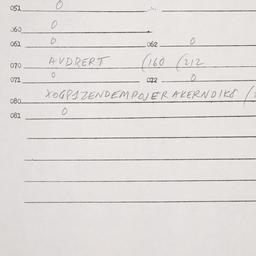 051 0
060 0
061 0 062 0
070 AVDRERT (160 (212
071 0 072 0
080
081 0